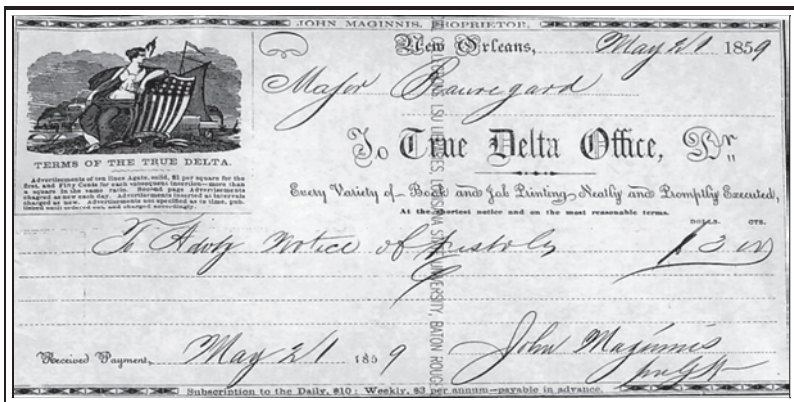 JOHN MAGINNIS, PROPRIETOR.
New Orleans, May 21 1859
Major Beauregard
To True Delta Office, Dr.
TERMS OF THE TRUE DELTA.
Advertisements of ten lines Agate, solid, $1 per square for the
first, and Fifty Cents for each subsequent insertion—more than
a square in the same ratio. Second page Advertisements
charged as new each day. Advertisements inserted at intervals
charged as new. Advertisements not specified as to time, published
until ordered out, and charged accordingly.
Every Variety of Book and Job Printing Neatly and Promptly Executed,
At the shortest notice and on the most reasonable terms.
DOLLS. CTS.
To Advg Notice of
Received Payment, May 21 1859
John Maginnis
Subscription to the Daily, $10; Weekly, $3 per annum—payable in advance.
LSU LIBRARIES, LOUISIANA STATE UNIVERSITY, BATON ROUGE